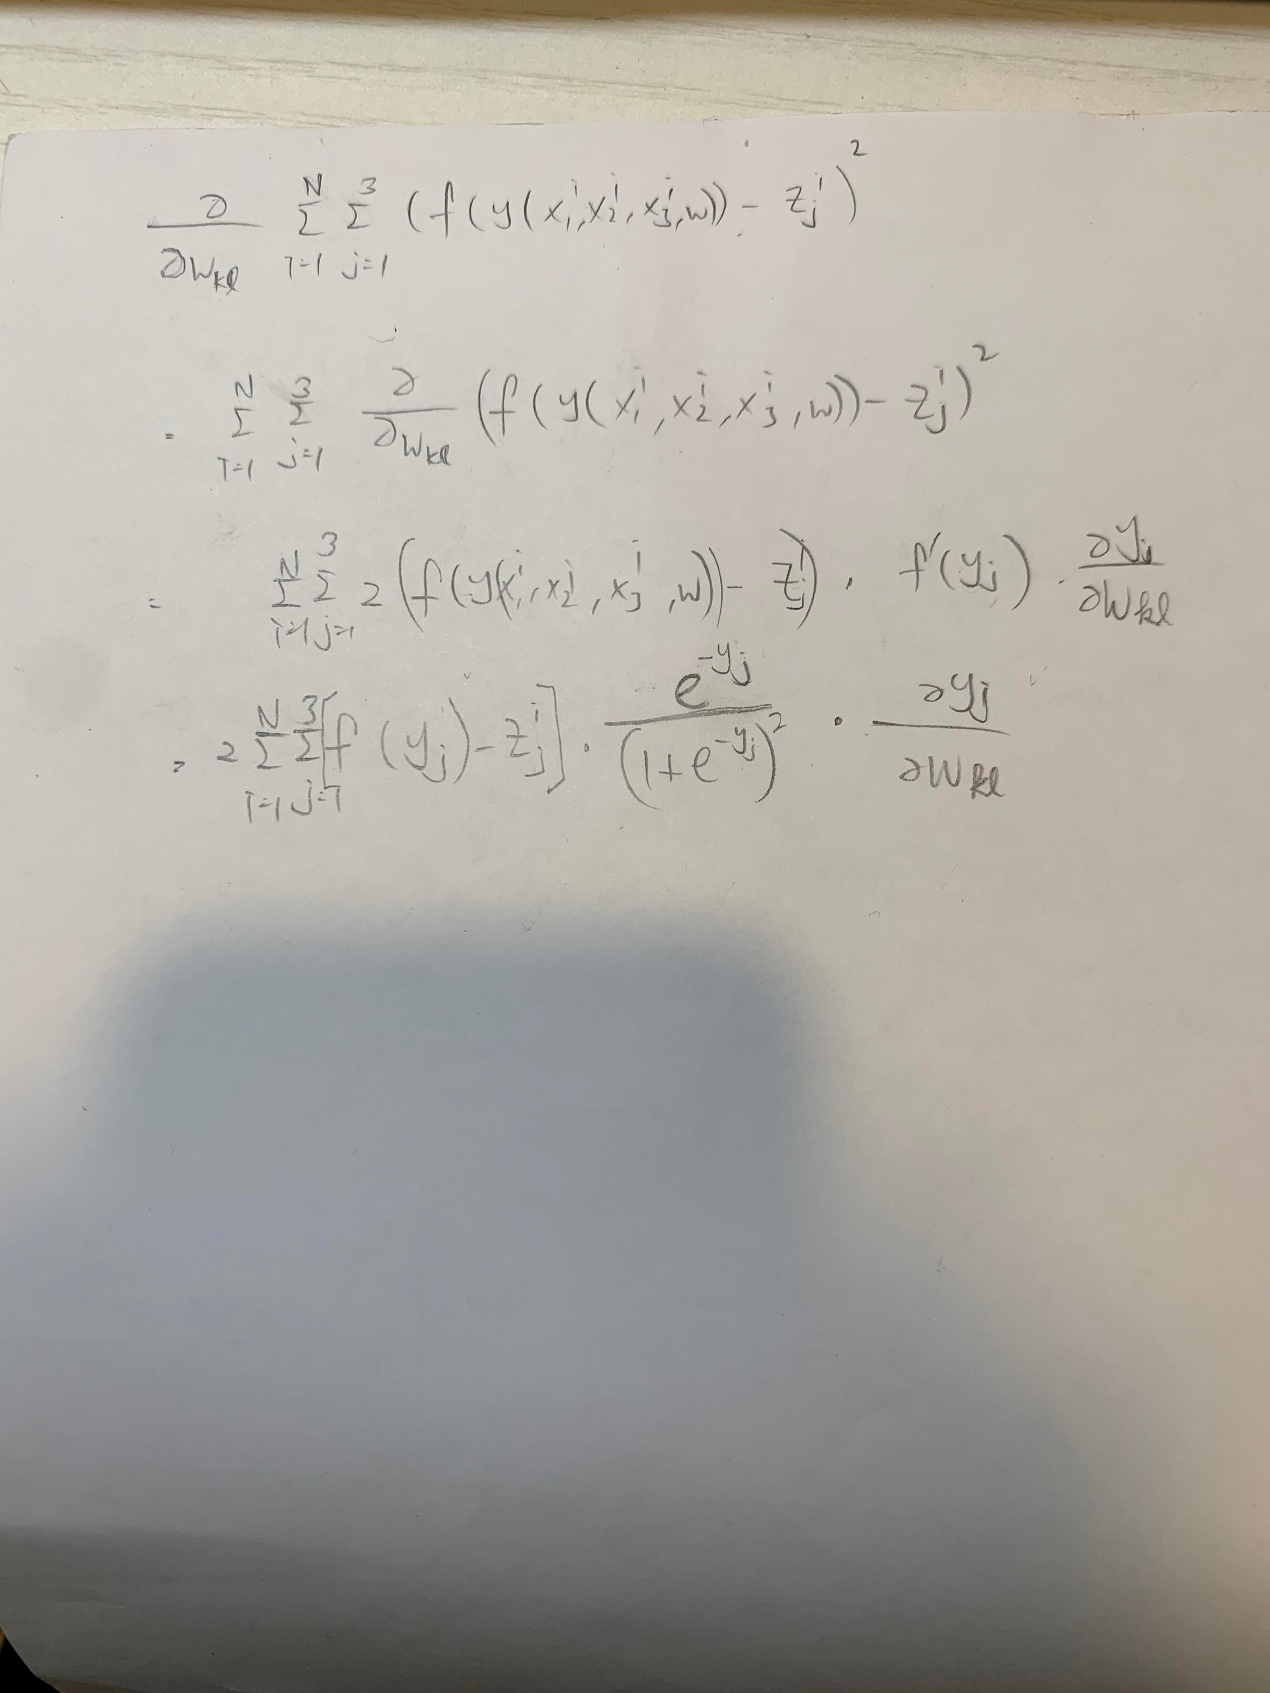 ∂/∂w_{kl} Σ_{i=1}^{N} Σ_{j=1}^{3} (f(y(x_1^i, x_2^i, x_3^i, w)) - z_j^i)^2
= Σ_{i=1}^{N} Σ_{j=1}^{3} ∂/∂w_{kl} (f(y(x_1^i, x_2^i, x_3^i, w)) - z_j^i)^2
= Σ_{i=1}^{N} Σ_{j=1}^{3} 2 (f(y(x_1^i, x_2^i, x_3^i, w)) - z_j^i) · f'(y_j) · ∂y_j/∂w_{kl}
= 2 Σ_{i=1}^{N} Σ_{j=1}^{3} [f(y_j) - z_j^i] · e^{-y_j}/(1+e^{-y_j})^2 · ∂y_j/∂w_{kl}